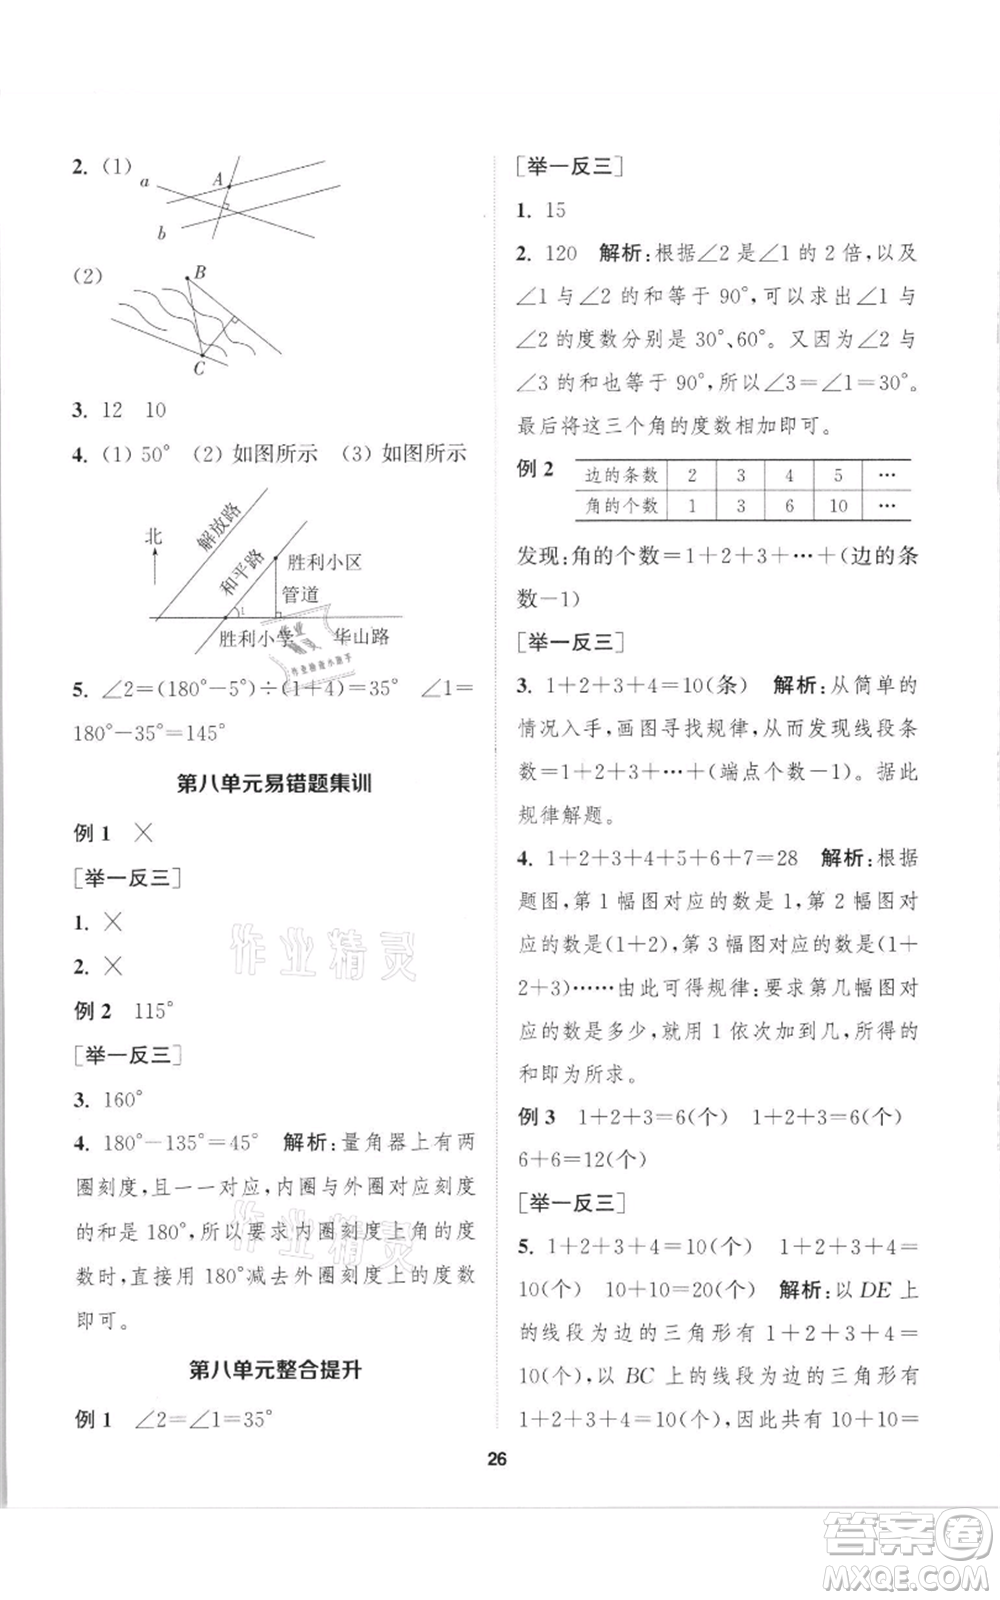 2. (1)
a
A
b
(2)
B
C
3. 12 10
4. (1) 50° (2) 如图所示 (3) 如图所示
北
解放路
和平路
胜利小区
管道
1
胜利小学
华山路
5. ∠2=(180°-5°)÷(1+4)=35° ∠1=
180°-35°=145°
第八单元易错题集训
例 1 ×
[举一反三]
1. ×
2. ×
例 2 115°
[举一反三]
3. 160°
4. 180°-135°=45° 解析:量角器上有两
圈刻度,且一一对应,内圈与外圈对应刻度
的和是 180°,所以要求内圈刻度上角的度
数时,直接用 180°减去外圈刻度上的度数
即可。
第八单元整合提升
例 1 ∠2=∠1=35°
[举一反三]
1. 15
2. 120 解析:根据∠2 是∠1 的 2 倍,以及
∠1 与∠2 的和等于 90°,可以求出∠1 与
∠2 的度数分别是 30°、60°。又因为∠2 与
∠3 的和也等于 90°,所以∠3=∠1=30°。
最后将这三个角的度数相加即可。
例 2
边的条数 2 3 4 5 …
角的个数 1 3 6 10 …
发现:角的个数=1+2+3+…+(边的条
数-1)
[举一反三]
3. 1+2+3+4=10(条) 解析:从简单的
情况入手,画图寻找规律,从而发现线段条
数=1+2+3+…+(端点个数-1)。据此
规律解题。
4. 1+2+3+4+5+6+7=28 解析:根据
题图,第 1 幅图对应的数是 1,第 2 幅图对
应的数是(1+2),第 3 幅图对应的数是(1+
2+3)……由此可得规律:要求第几幅图对
应的数是多少,就用 1 依次加到几,所得的
和即为所求。
例 3 1+2+3=6(个) 1+2+3=6(个)
6+6=12(个)
[举一反三]
5. 1+2+3+4=10(个) 1+2+3+4=
10(个) 10+10=20(个) 解析:以 DE 上
的线段为边的三角形有 1+2+3+4=
10(个),以 BC 上的线段为边的三角形有
1+2+3+4=10(个),因此共有 10+10=
26
作业精灵
作业精灵
作业
作业检查小助手
答案卷
MXQE.COM